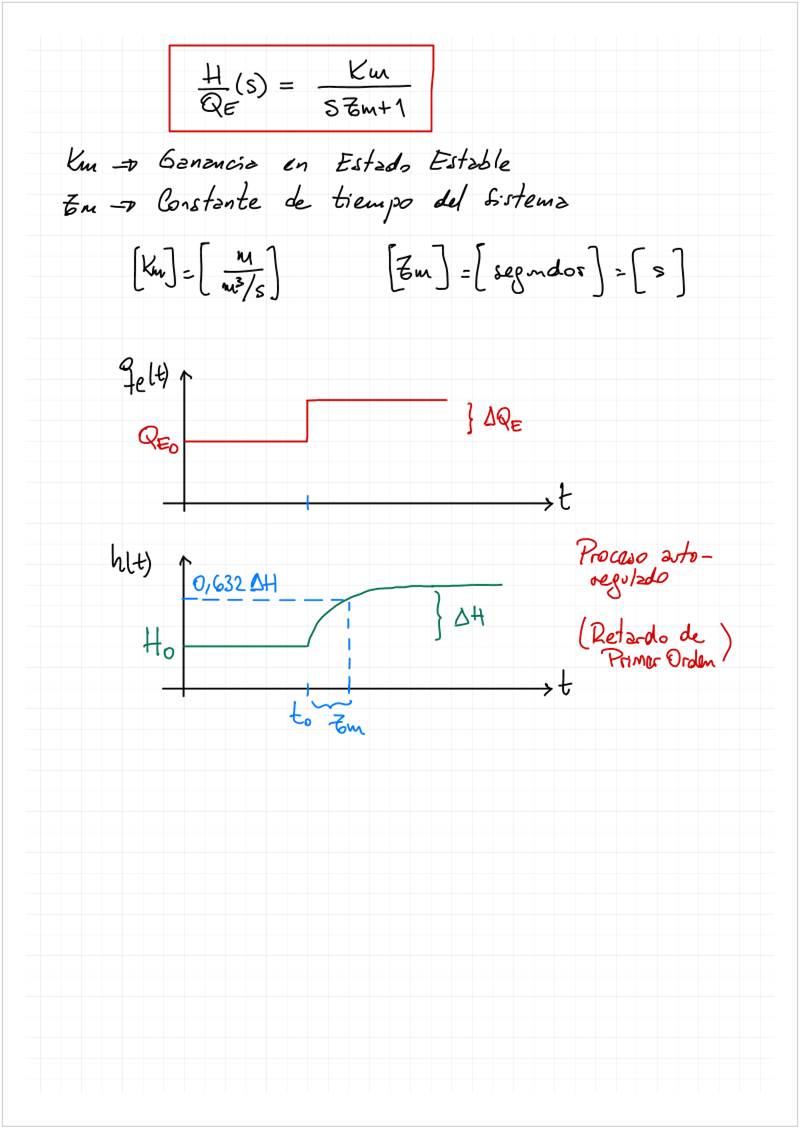 H/Q_E (s) = Km / (s τm + 1)
Km → Ganancia en Estado Estable
τm → Constante de tiempo del sistema
[Km] = [m / m³/s]    [τm] = [segundos] = [s]
q_e(t)
Q_E0
} ΔQ_E
t
h(t)
0,632 ΔH
H_0
} ΔH
t
t_0 τm
Proceso auto-
regulado
(Retardo de
Primer Orden)